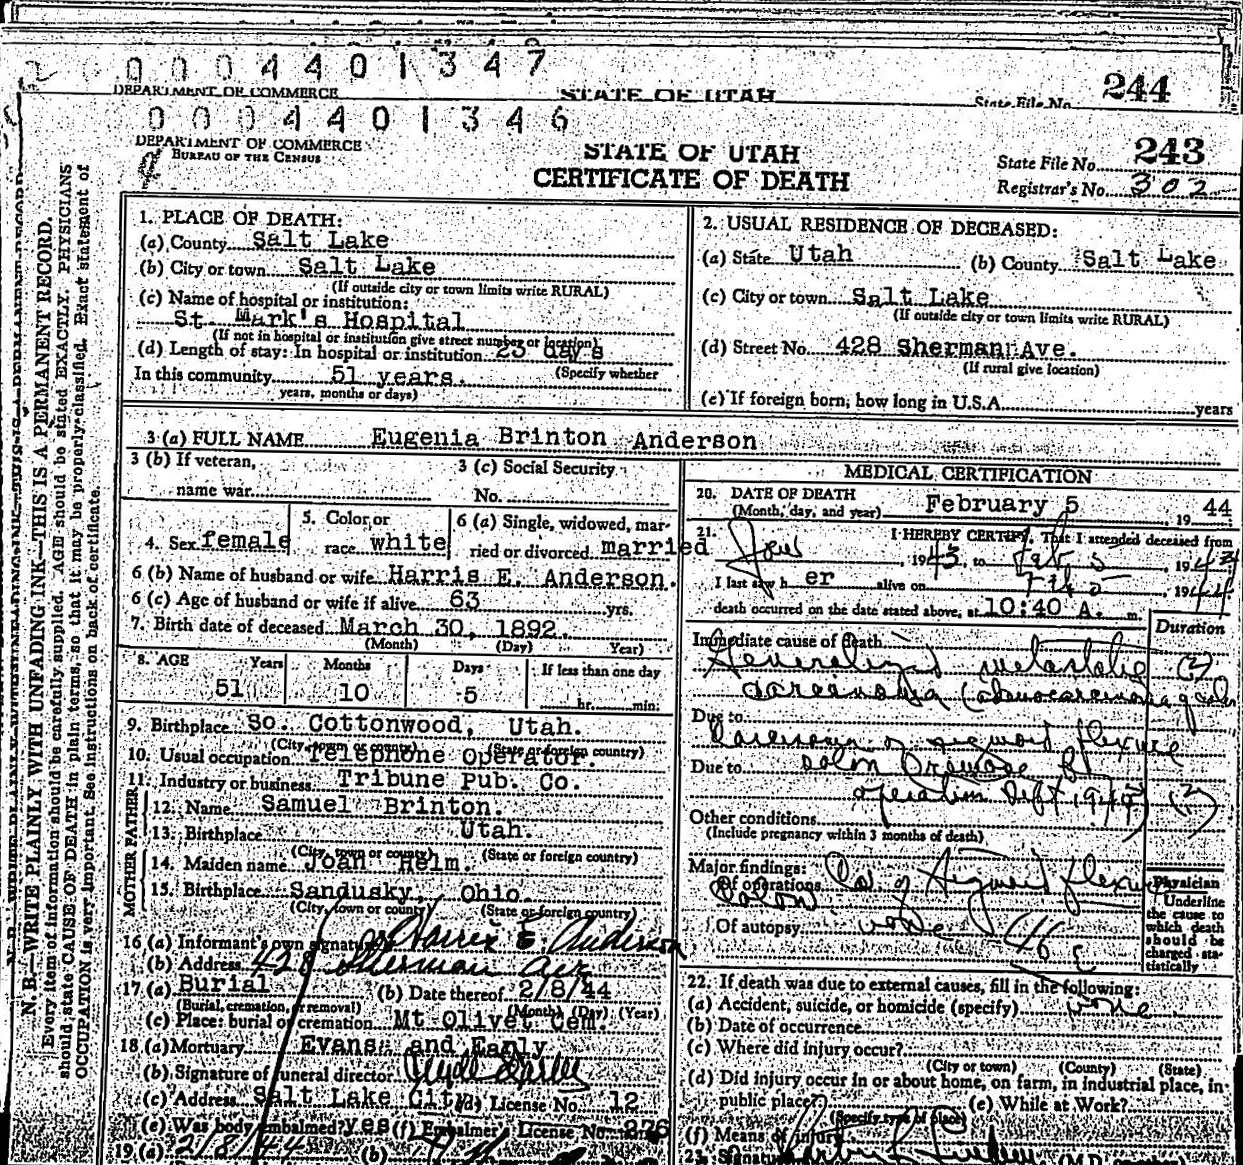 0 0 0 4 4 0 1 3 4 7
DEPARTMENT OF COMMERCE STATE OF UTAH State File No. 244
0 0 0 4 4 0 1 3 4 6
DEPARTMENT OF COMMERCE
BUREAU OF THE CENSUS
STATE OF UTAH
CERTIFICATE OF DEATH
State File No. 243
Registrar's No. 302
N. B.—WRITE PLAINLY WITH UNFADING INK—THIS IS A PERMANENT RECORD.
Every item of information should be carefully supplied. AGE should be stated EXACTLY. PHYSICIANS
should state CAUSE OF DEATH in plain terms, so that it may be properly classified. Exact statement of
OCCUPATION is very important. See instructions on back of certificate.
1. PLACE OF DEATH:
(a) County Salt Lake
(b) City or town Salt Lake
(If outside city or town limits write RURAL)
(c) Name of hospital or institution:
St Mark's Hospital
(If not in hospital or institution give street number or location)
(d) Length of stay: In hospital or institution 23 days
In this community 51 years. (Specify whether
years, months or days)
2. USUAL RESIDENCE OF DECEASED:
(a) State Utah (b) County Salt Lake
(c) City or town Salt Lake
(If outside city or town limits write RURAL)
(d) Street No. 428 Sherman Ave.
(If rural give location)
(e) If foreign born, how long in U.S.A. years
3 (a) FULL NAME Eugenia Brinton Anderson
3 (b) If veteran, 3 (c) Social Security
name war No.
4. Sex female 5. Color or race white 6 (a) Single, widowed, married or divorced married
6 (b) Name of husband or wife Harris E. Anderson.
6 (c) Age of husband or wife if alive 63 yrs.
7. Birth date of deceased March 30, 1892.
(Month) (Day) Year)
8. AGE Years Months Days If less than one day
51 10 5 hr. min.
9. Birthplace So. Cottonwood, Utah.
(City, town or county) (State or foreign country)
10. Usual occupation Telephone Operator.
11. Industry or business Tribune Pub. Co.
FATHER
12. Name Samuel Brinton.
13. Birthplace Utah.
(City, town or county) (State or foreign country)
MOTHER
14. Maiden name Joan Helm.
15. Birthplace Sandusky, Ohio.
(City, town or county) (State or foreign country)
16 (a) Informant's own signature Harris E Anderson
(b) Address 428 Sherman Ave
17 (a) Burial (b) Date thereof 2/8/44
(Burial, cremation, or removal) (Month) (Day) (Year)
(c) Place: burial or cremation Mt Olivet Cem.
18 (a) Mortuary Evans and Early
(b) Signature of funeral director
(c) Address Salt Lake City (d) License No. 12
(e) Was body embalmed? yes (f) Embalmer License No. 276
19 (a) 2/8/44 (b)
MEDICAL CERTIFICATION
20. DATE OF DEATH
(Month, day, and year) February 5, 19 44
21. I HEREBY CERTIFY, That I attended deceased from
, 1943, to Feb 5, 1944
I last saw h er alive on Feb 5, 1944.
death occurred on the date stated above, at 10:40 A. m.
Duration
Immediate cause of death
Generalized metastatic
Due to
Carcinoma of sigmoid flexure
Due to colon
operation Sept 1943
Other conditions
(Include pregnancy within 3 months of death)
Major findings:
Of operations Ca. of Sigmoid flexure
Colon
Of autopsy none
46
Physician
Underline
the cause to
which death
should be
charged sta-
tistically
22. If death was due to external causes, fill in the following:
(a) Accident, suicide, or homicide (specify) none
(b) Date of occurrence
(c) Where did injury occur?
(City or town) (County) (State)
(d) Did injury occur in or about home, on farm, in industrial place, in
public place? (e) While at Work?
(Specify type of place)
(f) Means of injury
23. Signature